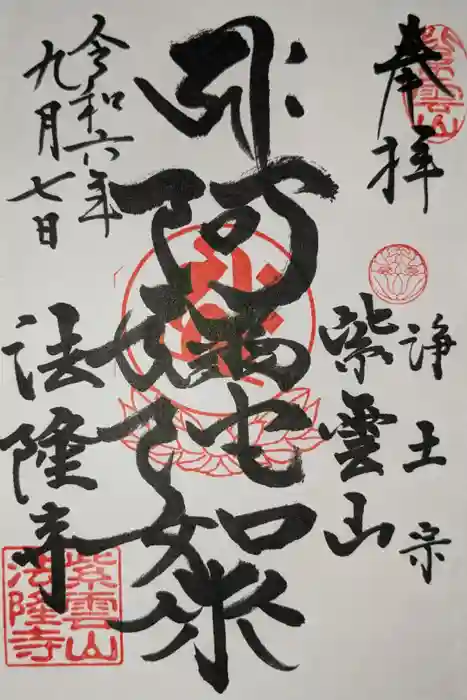 奉拝
紫雲山
淨土宗
紫雲山
阿彌陀如来
法隆寺
令和六年
九月七日
紫雲山
法隆寺